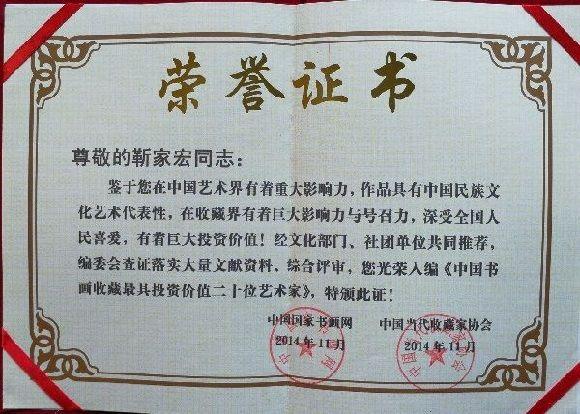 荣誉证书
尊敬的靳家宏同志：
鉴于您在中国艺术界有着重大影响力，作品具有中国民族文
化艺术代表性，在收藏界有着巨大影响力与号召力，深受全国人
民喜爱，有着巨大投资价值！经文化部门、社团单位共同推荐，
编委会查证落实大量文献资料、综合评审，您光荣入编《中国书
画收藏最具投资价值二十位艺术家》，特颁此证！
中国国家书画网 中国当代收藏家协会
2014年11月 2014年11月